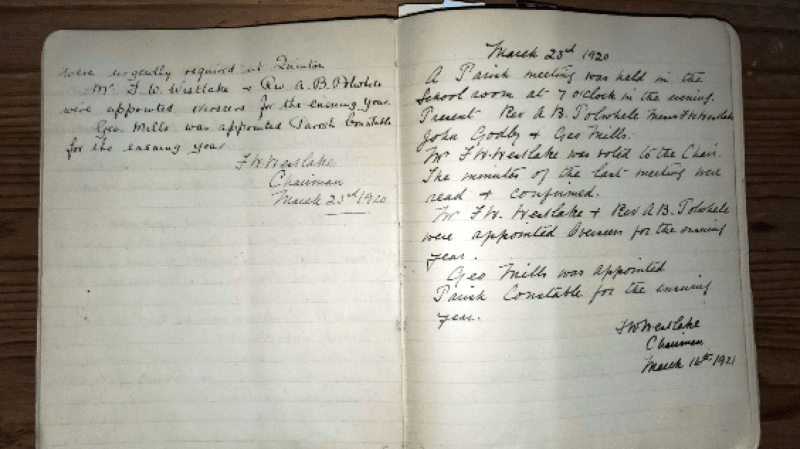 were urgently required at Quinton
Mr F. W. Westlake + Rev A. B. Polwhele
were appointed overseers for the ensuing year.
Geo. Mills was appointed Parish Constable
for the ensuing year
F W Westlake
Chairman
March 23rd 1920
March 23rd 1920
A Parish meeting was held in the
School room at 7 o'clock in the evening.
Present Rev A B. Polwhele Messrs F W Westlake
John Godby + Geo Mills.
Mr F W. Westlake was voted to the Chair.
The minutes of the last meeting were
read + confirmed.
Mr F W. Westlake + Rev A B. Polwhele
were appointed Overseers for the ensuing
year.
Geo Mills was appointed
Parish Constable for the ensuing
year.
F W Westlake
Chairman
March 16th 1921